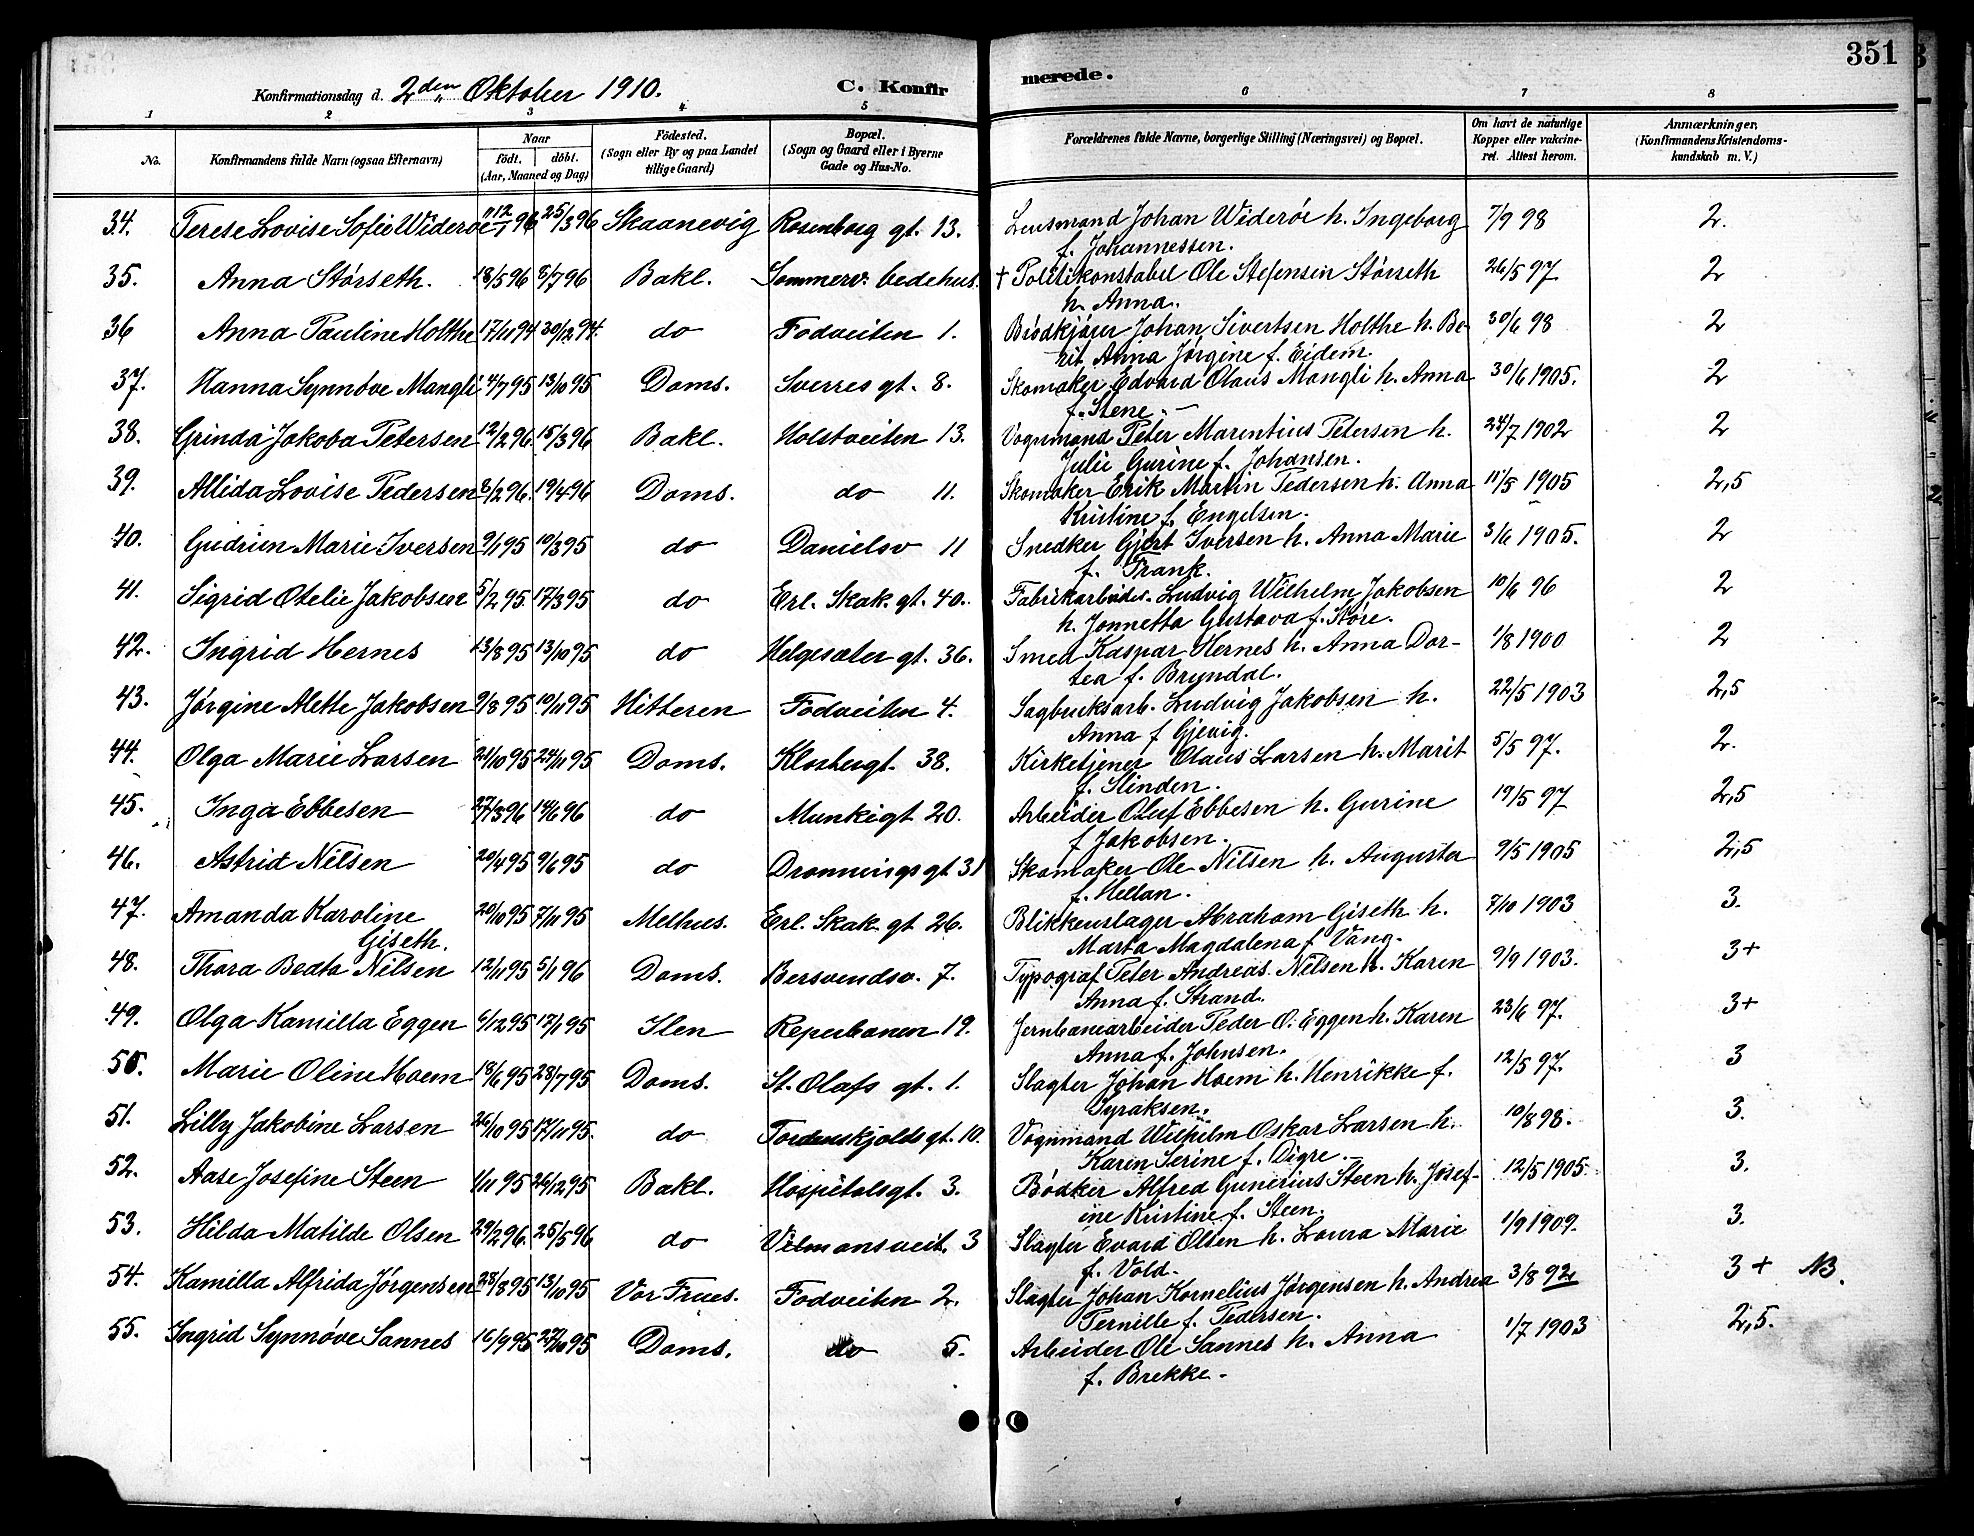 351
Konfirmationsdag d. 2den Oktober 1910. C. Konfirmerede.
1 2 3 4 5 6 7 8
No. Konfirmandens fulde Navn (ogsaa Efternavn) Naar født. døbt. (Aar, Maaned og Dag) Fødested. (Sogn eller By og paa Landet tillige Gaard) Bopæl. (Sogn og Gaard eller i Byerne Gade og Hus-No. Forældrenes fulde Navne, borgerlige Stilling (Næringsvei) og Bopæl. Om havt de naturlige Kopper eller vakcineret. Attest herom. Anmærkninger, (Konfirmandens Kristendomskundskab m. V.)
34. Terese Lovise Sofie Widerøe 12/1 96 25/3 96 Skaanevig Rosenborg gt. 13. Lensmand Johan Widerøe h. Ingeborg 7/9 98 2.
f. Johannessen.
35. Anna Størseth. 18/5 96 8/7 96 Bakl. Sommerv. bedehus. + Politikonstabel Ole Stefensen Størseth 26/5 97 2
h. Anna.
36 Anna Pauline Holthe 17/11 94 30/12 94. do Fodveiten 1. Brødkjører Johan Sivertsen Holthe h. Be- 30/6 98 2
rit Anna Jørgine f. Eidem.
37. Hanna Synnøve Mangli 4/7 95 13/10 95 Doms. Sverres gt. 8. Skomaker Edvard Olaus Mangli h. Anna 30/6 1905. 2
f. Stene. —
38. Grinda Jakoba Petersen 12/2 96. 15/3 96 Bakl. Holstveiten 13. Vognmand Peter Marentius Petersen h. 24/7 1902 2
Julie Gurine f. Johansen.
39. Allida Lovise Pedersen 8/2 96. 19/4 96 Doms. do 11. Skomaker Erik Martin Pedersen h. Anna 11/5 1905 2,5
Kristine f. Engelsen.
40. Gudrun Marie Iversen 9/1 95 10/3 95 do Danielsv 11 Snedker Gjert Iversen h. Anna Marie 3/6 1905. 2
f. Frank.
41. Sigrid Otelie Jakobsen 5/2 95. 17/3 95 do Erl. Skak. gt. 40. Fabrikarbeider Ludvig Wilhelm Jakobsen 10/6 96 2
h. Jonnetta Gustava f. Støre.
42. Ingrid Hernes 13/8 95 13/10 95 do Helgesæter gt. 36. Smed Kaspar Hernes h. Anna Dor- 1/8 1900 2
tea f. Bryndal.
43. Jørgine Alette Jakobsen 9/8 95 10/11 95 Hitteren Fodveiten 4. Sagbruksarb. Ludvig Jakobsen h. 22/5 1903 2,5
Anna f Gjevig.
44. Olga Marie Larsen 21/10 95 24/11 95 Doms. Klostergt. 38. Kirketjener Olaus Larsen h. Marit 5/5 97. 2.
f. Slinden.
45. Inga Ebbesen 27/3 96 14/6 96 do Munkegt 20. Arbeider Oluf Ebbesen h. Gurine 19/5 97 2,5
f Jakobsen.
46. Astrid Nilsen 20/4 95 9/6 95 do Dronningsgt 31 Skomaker Ole Nilsen h. Augusta 9/5 1905 2,5
f. Hellan.
47. Amanda Karoline 20/10 95 7/11 95 Melhus. Erl. Skak. gt 26. Blikkenslager Abraham Giseth h. 7/10 1903 3.
Giseth. Marta Magdalena f Vang.
48. Thora Beata Nilsen 12/11 95 5/1 96 Doms. Bersvendsv. 7. Typograf Peter Andreas Nilsen h. Karen 9/9 1903. 3+
Anna f. Strand.
49. Olga Kamilla Eggen 6/12 95 17/1 95 Ilen Reperbanen 19. Jernbanearbeider Peder O. Eggen h. Karen 23/6 97. 3+
Anna f. Johnsen.
50. Marie Oline Moem 18/6 95 28/7 95 Doms. St. Olafs gt. 1. Slagter Johan Moem h. Henrikke f. 12/5 97. 3
Syraksen.
51. Lilly Jakobine Larsen 26/10 95 17/11 95. do Tordenskjolds gt. 10. Vognmand Wilhelm Oskar Larsen h. 10/8 98. 3.
Karen Serine f. Digre.
52. Aase Josefine Steen 1/11 95 26/12 95 Bakl. Hospitalsgt. 3. Bødker Alfred Gunerius Steen h. Josef- 12/5 1905. 3.
ine Kristine f. Steen.
53. Hilda Matilde Olsen 29/2 96. 25/5 96 do Vilmansveit. 3 Slagter Evard Olsen h. Laura Marie 1/9 1909. 3.
f. Vold.
54. Kamilla Alfrida Jørgensen 28/8 95 13/10 95 Vor Frues. Fodveiten 2. Slagter Johan Kornelius Jørgensen h. Andrea 3/8 92 3+ NB.
Pernille f. Pedersen.
55. Ingrid Synnøve Sannes 16/9 95 27/10 95 Doms. do 5. Arbeider Ole Sannes h. Anna 1/7 1903 2,5.
f. Brekke.